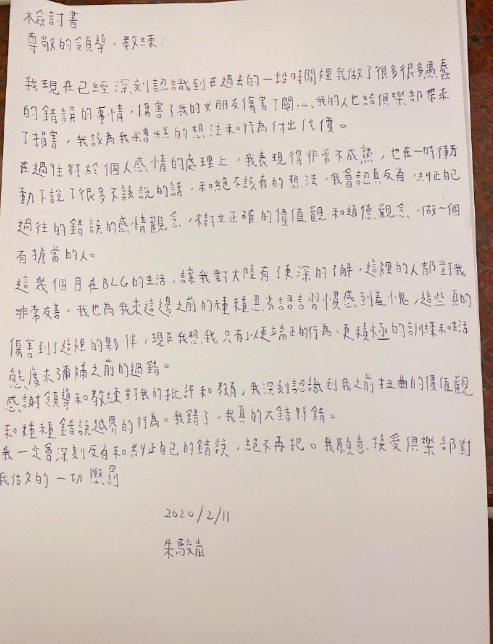 檢討書
尊敬的領導、教練：
我現在已經深刻認識到在過去的一段時間裡我做了很多很多愚蠢
的錯誤的事情，傷害了我的女朋友傷害了關心我的人也給俱樂部帶來
了損害，我該為我糟糕的想法和行為付出代價。
在過往對於個人感情的處理上，我表現得非常不成熟，也在一時衝
動下說了很多不該說的話，和絕不該有的想法，我會認真反省，糾正自己
過往的錯誤的感情觀念，樹立正確的價值觀和道德觀念，做一個
有擔當的人。
這幾個月在BLG的生活，讓我對大陸有了更深的了解，這裡的人都對我
非常友善，我也為我來這邊之前的種種惡劣語言習慣感到羞愧，這些真的
傷害到了這裡的夥伴，現在我想我只有以更端正的行為、更積極的訓練和生活
態度來彌補之前的過錯。
感謝領導和教練對我的批評和教育，我深刻認識到我之前扭曲的價值觀
和種種錯誤越界的行為。我錯了，我真的大錯特錯。
我一定會深刻反省和糾正自己的錯誤，絕不再犯。我願意接受俱樂部對
我作出的一切懲罰
2020/2/11
朱駿嵐